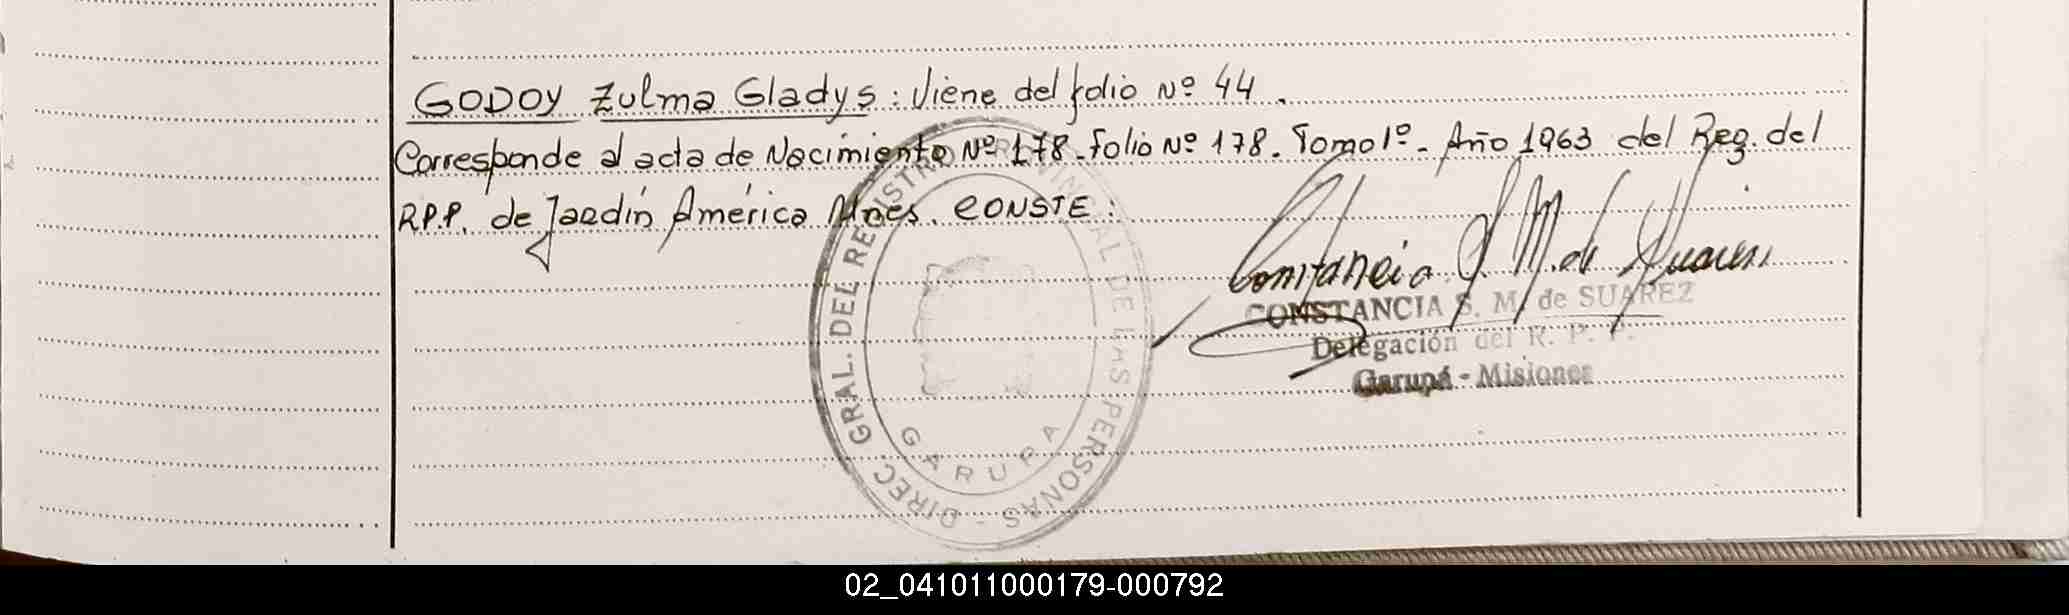 GODOY Zulma Gladys: Viene del folio Nº 44.
Corresponde al acta de Nacimiento Nº 178-folio Nº 178. Tomo 1º- Año 1963 del Reg. del
R.P.P. de Jardín América Mnes. CONSTE:
Constancia S. M. de Suarez
CONSTANCIA S. M. de SUAREZ
Delegación del R. P. P.
Garupá - Misiones
DIREC. GRAL. DEL REGISTRO PROVINCIAL DE LAS PERSONAS -
GARUPA
02_041011000179-000792